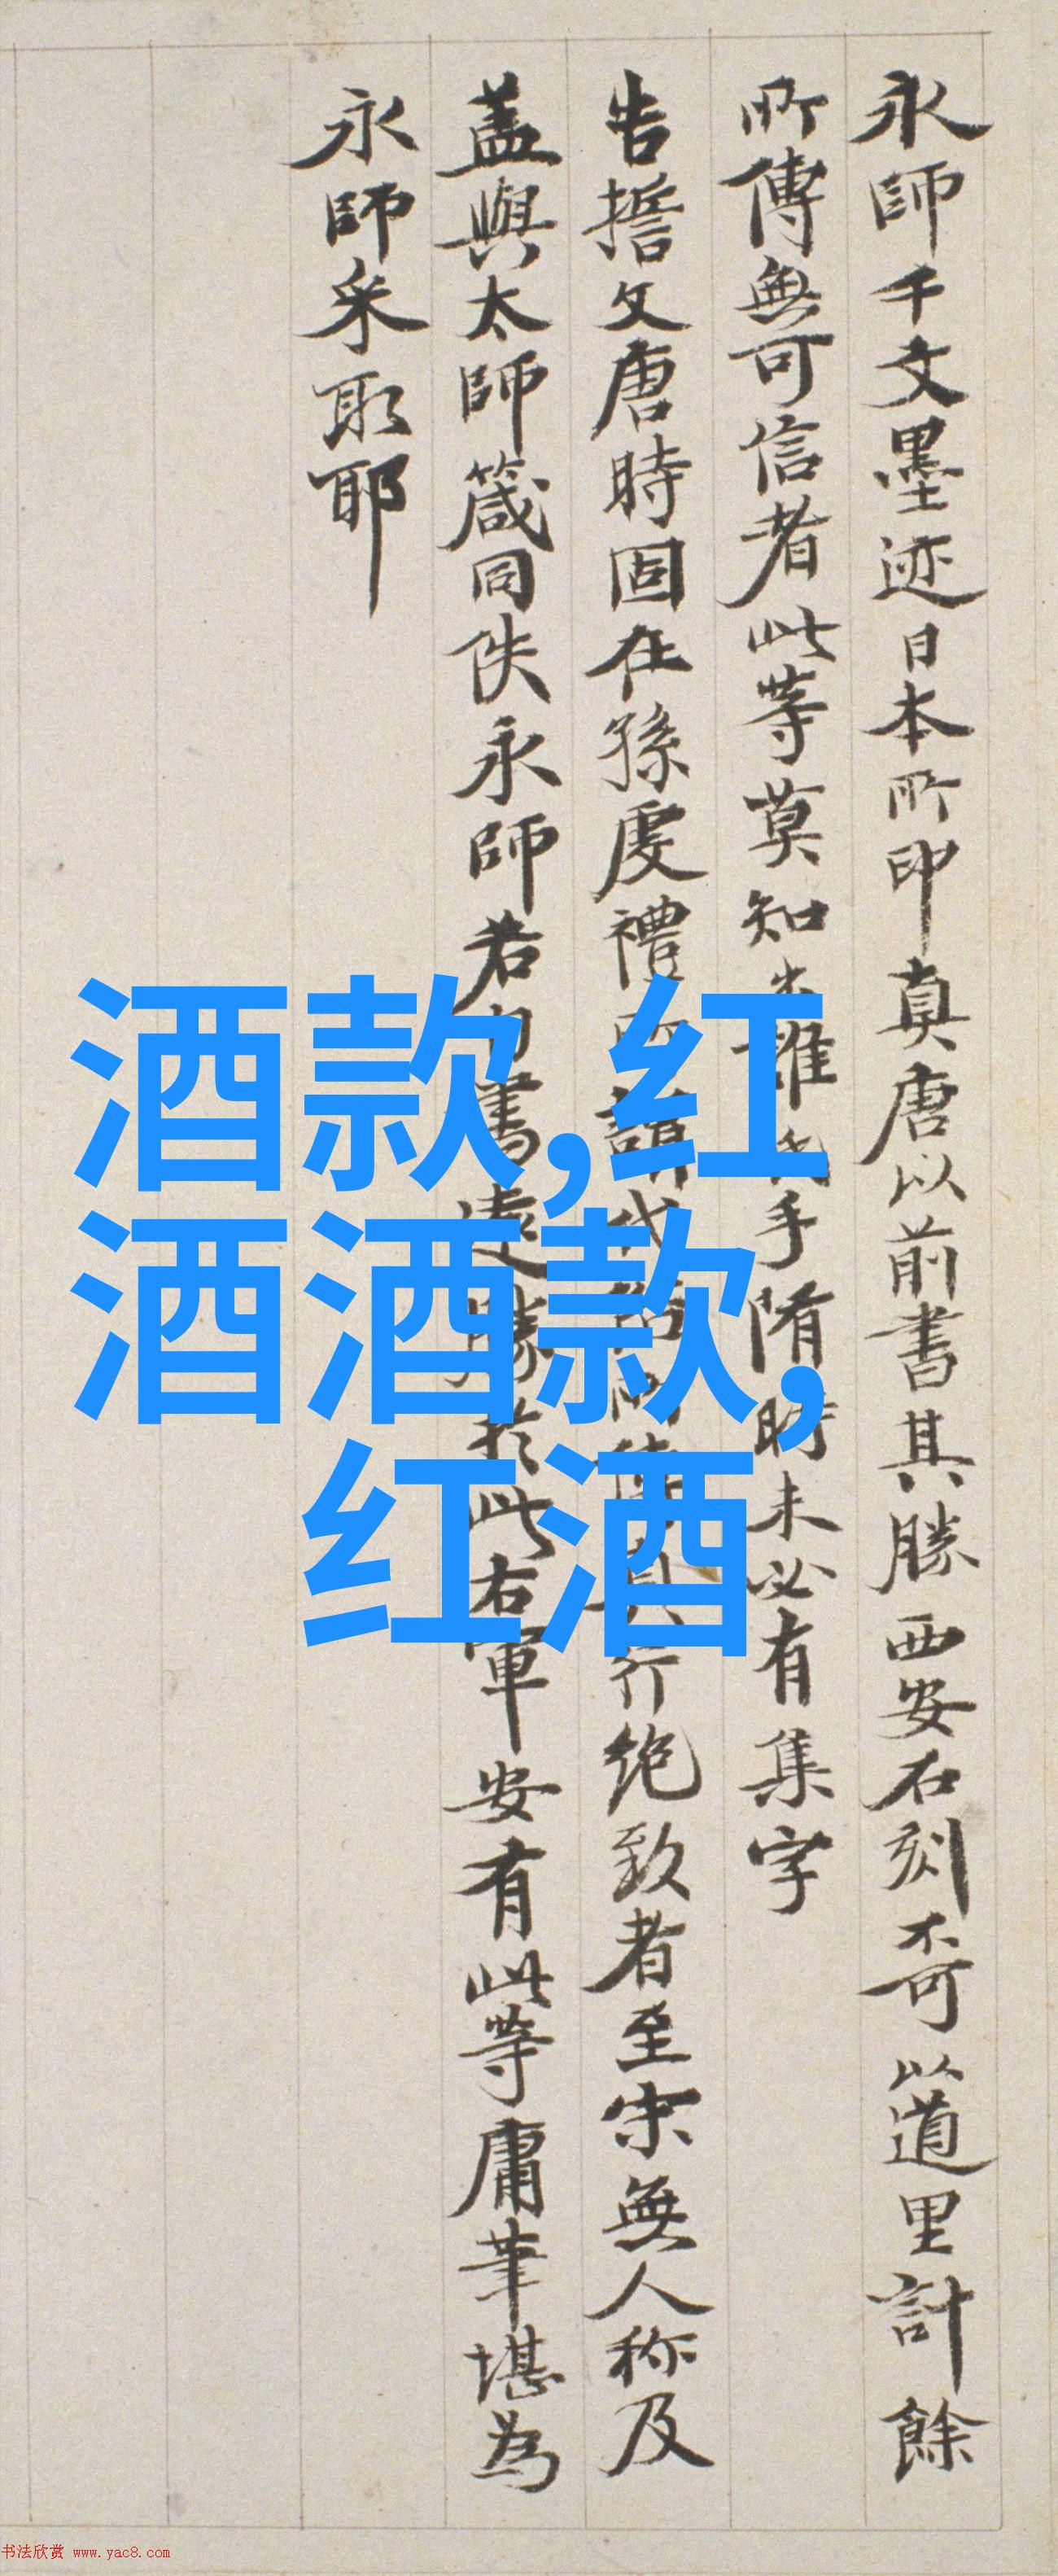 永師千文墨迹日本所印真唐以前書其勝西安石刻不可以道里計餘
所傳無可信者此等莫知出誰氏手隋時未必有集字
告誓文唐時固在孫虔禮所謂代俗所傳真行絶致者至宋無人称及
盖與太師箴同佚永師若為書遠勝於此右軍安有此等庸筆堪為
永師采取耶
酒款,红
酒酒款,
红酒
书法欣赏 www.yac8.com